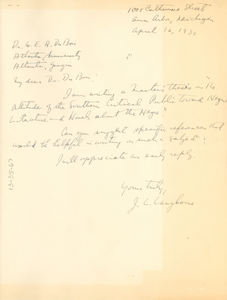 1005 Catherine Street
Ann Arbor, Michigan
April 16, 193
Dr. W. E. B. Du Bois
Atlanta University
Atlanta, Georgia
My dear Dr. Du Bois:
I am writing a Master's thesis on the
attitude of the Southern Critical Public toward Negro
Literature and Novels about the Negro.
Can you suggest specific references that
would be helpful in writing on such a subject?
I will appreciate an early reply
Yours truly,
J. L.